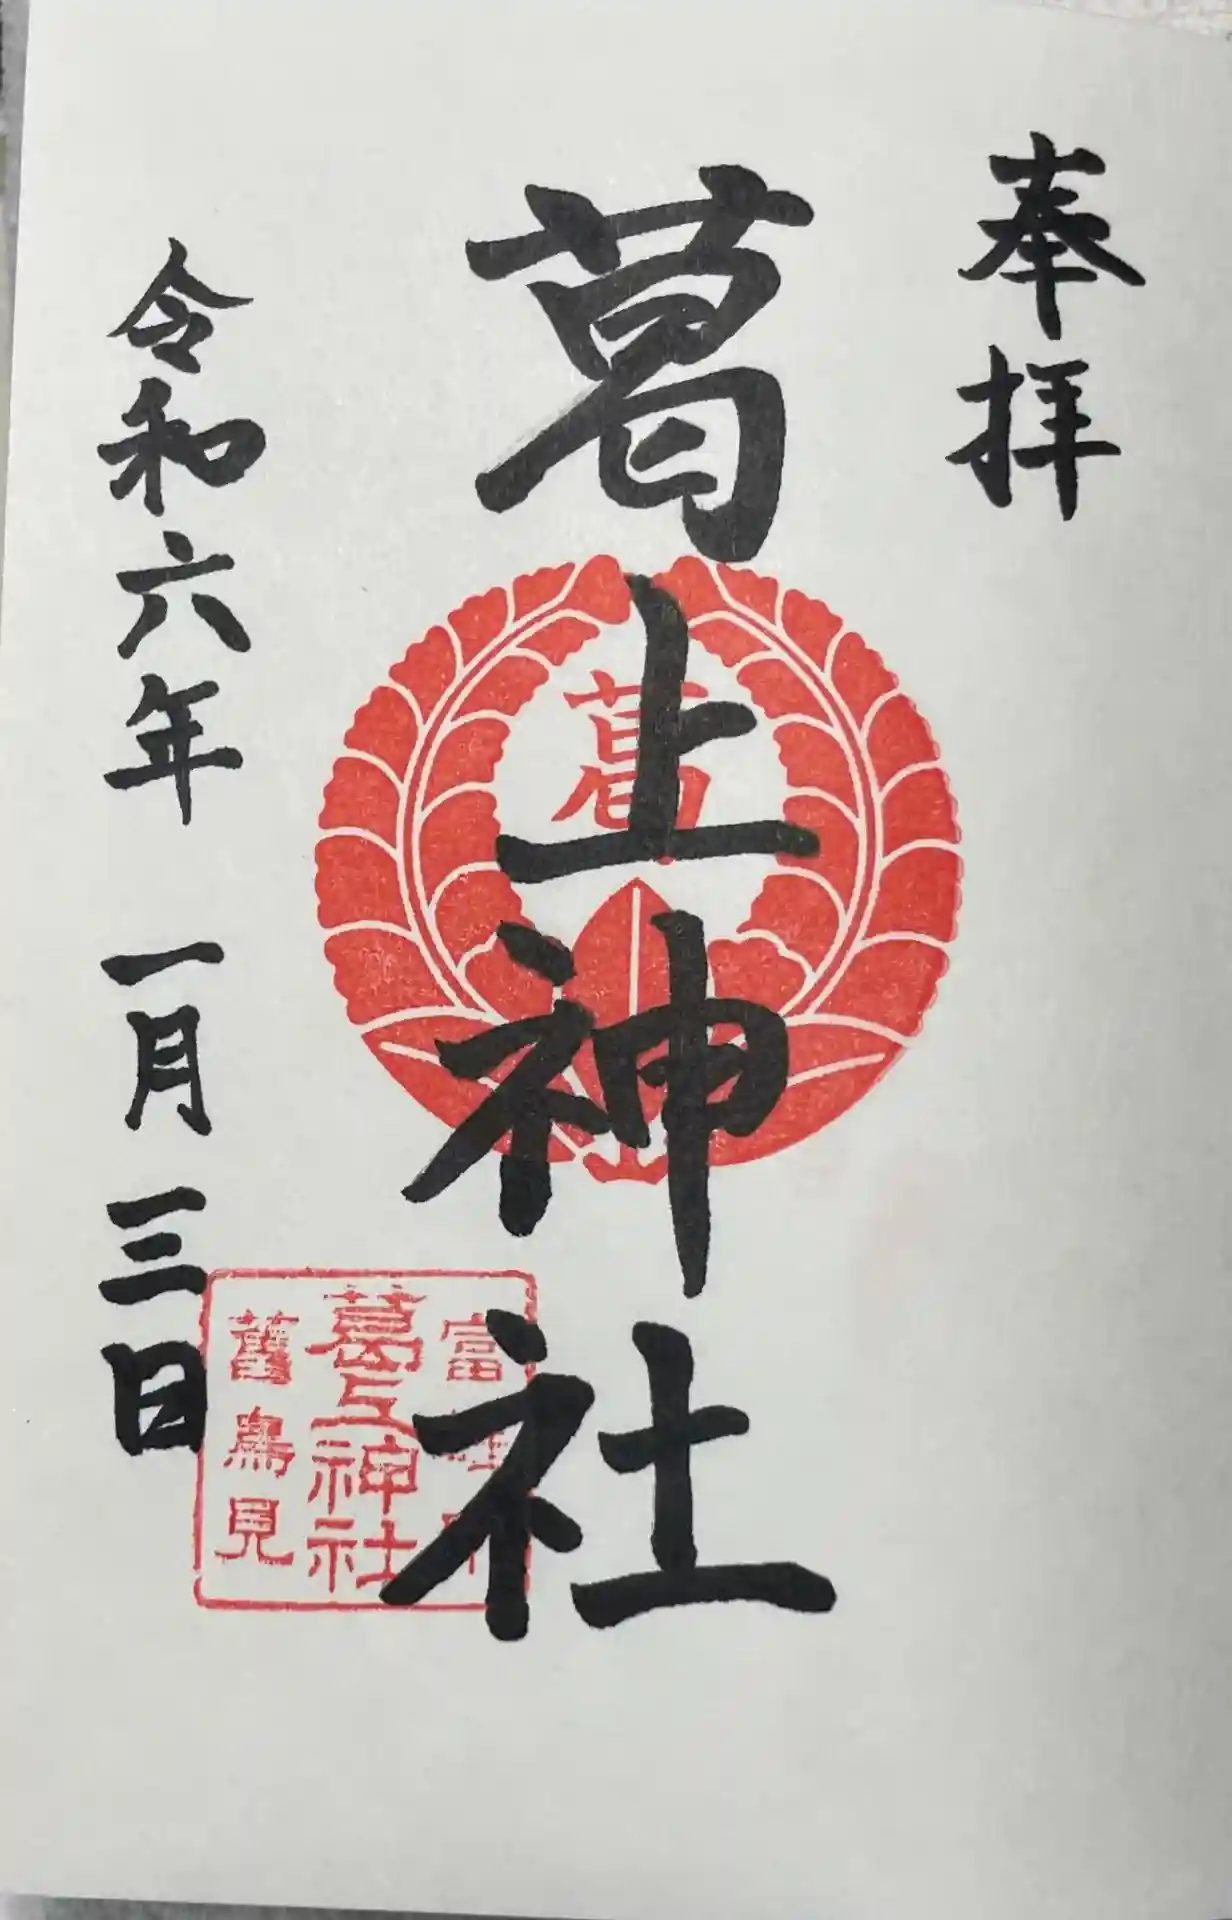 奉拝
葛上神社
葛
富
葛上神社
舊鳥見
令和六年 一月 三日